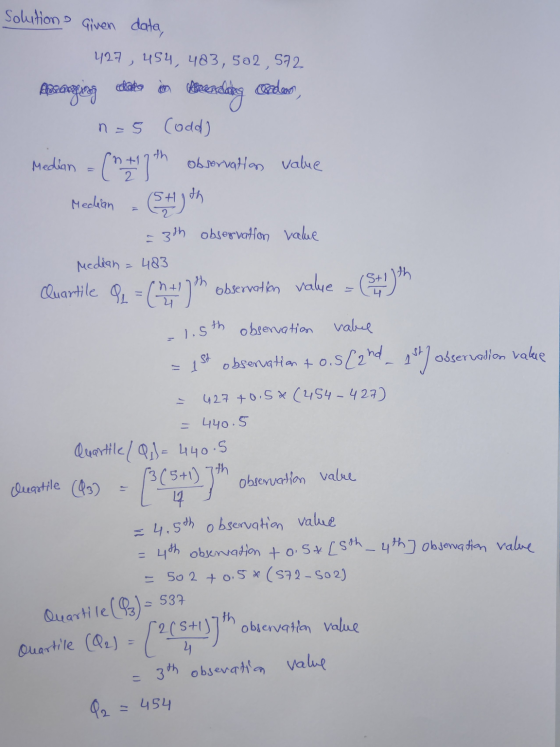 Solution:> Given data,
427, 454, 483, 502, 572
Arranging data in Ascending Order,
n = 5 (odd)
Median = [n+1/2]th observation value
Median = (5+1/2)th
= 3th observation value
Median = 483
Quartile Q1 = [n+1/4]th observation value = (5+1/4)th
= 1.5th observation value
= 1st observation + 0.5[2nd - 1st] observation value
= 427 + 0.5 * (454 - 427)
= 440.5
Quartile(Q1) = 440.5
Quartile (Q3) = [3(5+1)/4]th observation value
= 4.5th observation value
= 4th observation + 0.5 * [5th - 4th] observation value
= 502 + 0.5 * (572 - 502)
Quartile(Q3) = 537
Quartile (Q2) = [2(5+1)/4]th observation value
= 3th observation value
Q2 = 454